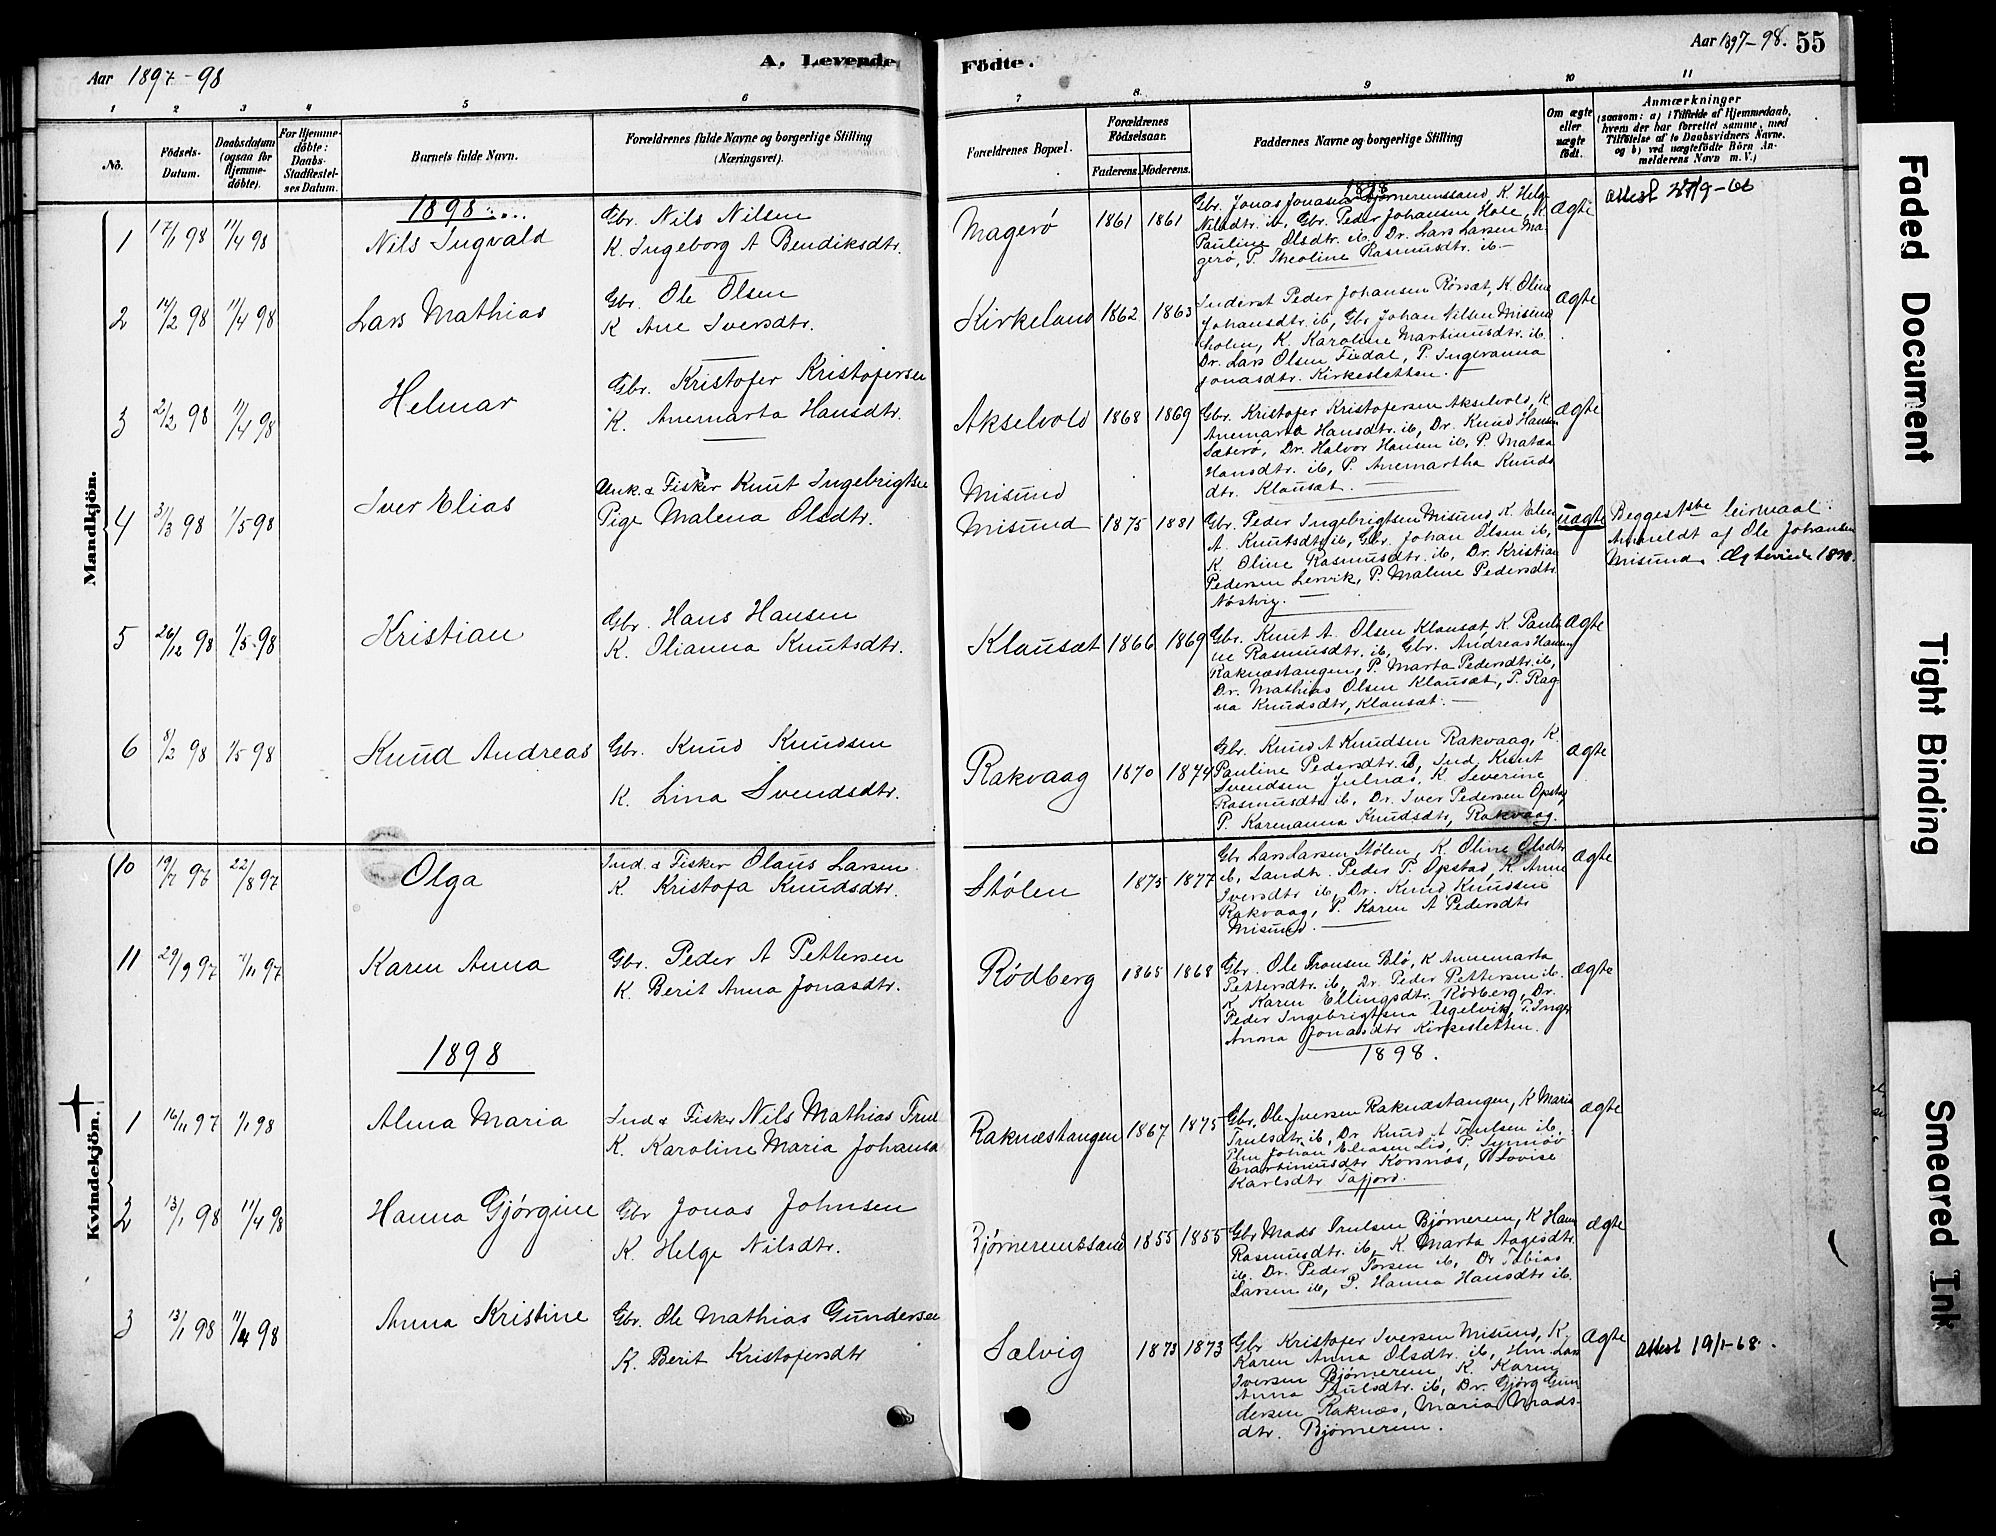 Aar 1897-98
A. Levende
Födte.
Aar 1897-98. 55
1 2 3 4 5 6
7 8 9 10 11
No.
Födsels-Datum.
Daabsdatum (ogsaa for Hjemme-döbte).
For Hjemme-döbte: Daabs-Stadfæstel-ses Datum.
Barnets fulde Navn.
Forældrenes fulde Navne og borgerlige Stilling (Næringsvei).
Forældrenes Bopæl.
Forældrenes Födselsaar.
Faderens. Moderens.
Faddernes Navne og borgerlige Stilling
Om ægte eller uægte födt.
Anmærkninger
(saasom: a) i Tilfælde af Hjemmedaab, hvem der har forrettet samme, med Tilföielse af to Daabsvidners Navne. og b) ved uægtefödte Börn An-melderens Navn m. V.)
Mandkjön.
1898
1898
1 17/1 98 11/4 98 Nils Ingvald
Gbr. Nils Nilsen
K. Ingeborg A Bendiksdtr.
Magerö 1861 1861
Gbr. Jonas Jonasen Bjørneremssand K. Helge
Nilsdtr. ib, Gbr. Peder Johansen Hole, K.
Pauline Olsdtr. ib. Dr. Lars Larsen Ma-
gerø, P. Theoline Rasmusdtr. ib.-
ægte
Attest
2 14/2 98 11/4 98 Lars Mathias
Gbr. Ole Olsen
K Ane Iversdtr.
Kirkeland 1862 1863
Inderst Peder Johansen Rørsæt, K Oline
Johansdtr. ib, Gbr Johan Nilsen Misund
holm, K. Karoline Martinusdtr. ib.
Dr. Lars Olsen Tiedal, P. Ingeranna
Jonasdtr. Kirkesletten.
ægte
3 2/2 98 11/4 98 Helmar
Gbr. Kristofer Kristofersen
K. Anemarta Hansdtr.
Akselvold 1868 1869
Gbr. Kristofer Kristofersen Akselvold, K
Anemarta Hansdtr. ib, Dr. Knud Hansen
Sæterø, Dr. Halvor Hansen ib, P. Matea
Hansdtr. ib, P. Anemartha Knuds
dtr. Klausæt.
ægte
4 31/3 98 1/5 98 Iver Elias
Unk. & Fisker Knut Ingebrigtsen
Pige Malena Olsdtr.
Misund
Misund 1875 1881
Gbr. Peder Ingebrigtsen Misund K. Elen
A. Knutsdtr ib, Gbr. Johan Olsen ib,
K. Oline Rasmusdtr. ib, Dr. Kristian
Pedersen Lervik, P. Maline Pedersdtr
Nøstvig.
uægte
Begges 1ste leirmaal.
Anmeldt af Ole Johansen
Misund. Ægteviede 1898.
5 26/12 98 1/5 98 Kristian
Gbr. Hans Hansen
K. Olianna Knutsdtr.
Klausæt 1866 1869
Gbr. Knut A. Olsen Klausæt K. Pauli
ne Rasmusdtr. ib, Gbr. Andreas Hansen
Raknæstangen, P. Marta Pedersdtr. ib,
Dr. Mathias Olsen Klausæt, P. Rag
na Knudsdtr, Klausæt.
ægte
6 8/2 98 1/5 98 Knud Andreas
Gbr. Knud Knudsen
K. Lina Svendsdtr.
Rakvaag 1870 1874
Gbr. Knud A Knudsen Rakvaag, K.
Pauline Pedersdtr. ib, Ind. Knut
Svendsen Julnæs, K. Severine
Rasmusdtr ib, Dr. Iver Pedersen Opstad
P. Karenanna Knudsdtr, Rakvaag.
ægte
Kvindekjön.
10 19/7 97 22/8 97 Olga
Ind. & Fisker Olaus Larsen
K. Kristofa Knudsdtr.
Stølen 1875 1877
Gbr Lars Larsen Stølen, K Oline Olsdtr
ib, Landh. Peder P. Opstad, K Anne
Iversdtr ib, Dr. Knud Knudsen
Rakvaag, P. Karen A Pedersdtr
Misund.
ægte
11 29/9 97 7/11 97 Karen Anna
Gbr. Peder A Pettersen
K. Berit Anna Jonasdtr.
Rödberg 1865 1868
Gbr. Ole Tronsen Blø, K Annemarta
Pettersdtr. ib, Dr. Peder Pettersen ib.
K Karen Ellingsdtr. Rødberg, Dr.
Peder Ingebrigtsen Ugelvik, P. Inger
Anna Jonasdtr Kirkesletten.
ægte
1898
1898.
1 16/11 97 1/1 98 Alma Maria
Ind & Fisker Nils Mathias
K. Karoline Maria Johansd
Raknæstangen 1867 1875
Gbr. Ole Iversen Raknæstangen, K Marie
Trulsdtr. ib, Dr. Knud A Trulsen ib.
Johan Eliasen Lid, P. Synnøv
Martinusdtr Korsnæs, P Lovise
Karlsdtr Tafjord.
ægte
2 13/1 98 11/4 98 Hanna Gjørgine
Gbr Jonas Johnsen
K. Helge Nilsdtr.
Bjørneremssand 1855 1855
Gbr Mads Trulsen Bjørnerem, K Hanna
Rasmusdtr. ib, K. Marta Aagesdtr.
ib. Dr. Peder Torsen ib, Dr Tobias
Larsen ib, P. Hanna Hansdtr ib.
ægte
3 13/1 98 11/4 98 Anna Kristine
Gbr. Ole Mathias Gundersen
K. Berit Kristofersdtr
Sælvig 1873 1873
Gbr Kristofer Iversen Misund, K.
Karen Anna Olsdtr. ib, Hm. Lars
Iversen Bjørnerem, K Karen
Anna Trulsdtr. ib, Dr. Gjørg Gun
dersen Raknæs, Maria Mads-
dtr. Bjørnerem.
ægte
Attest 19/1-68.
Faded Document
Tight Binding
Smeared Ink